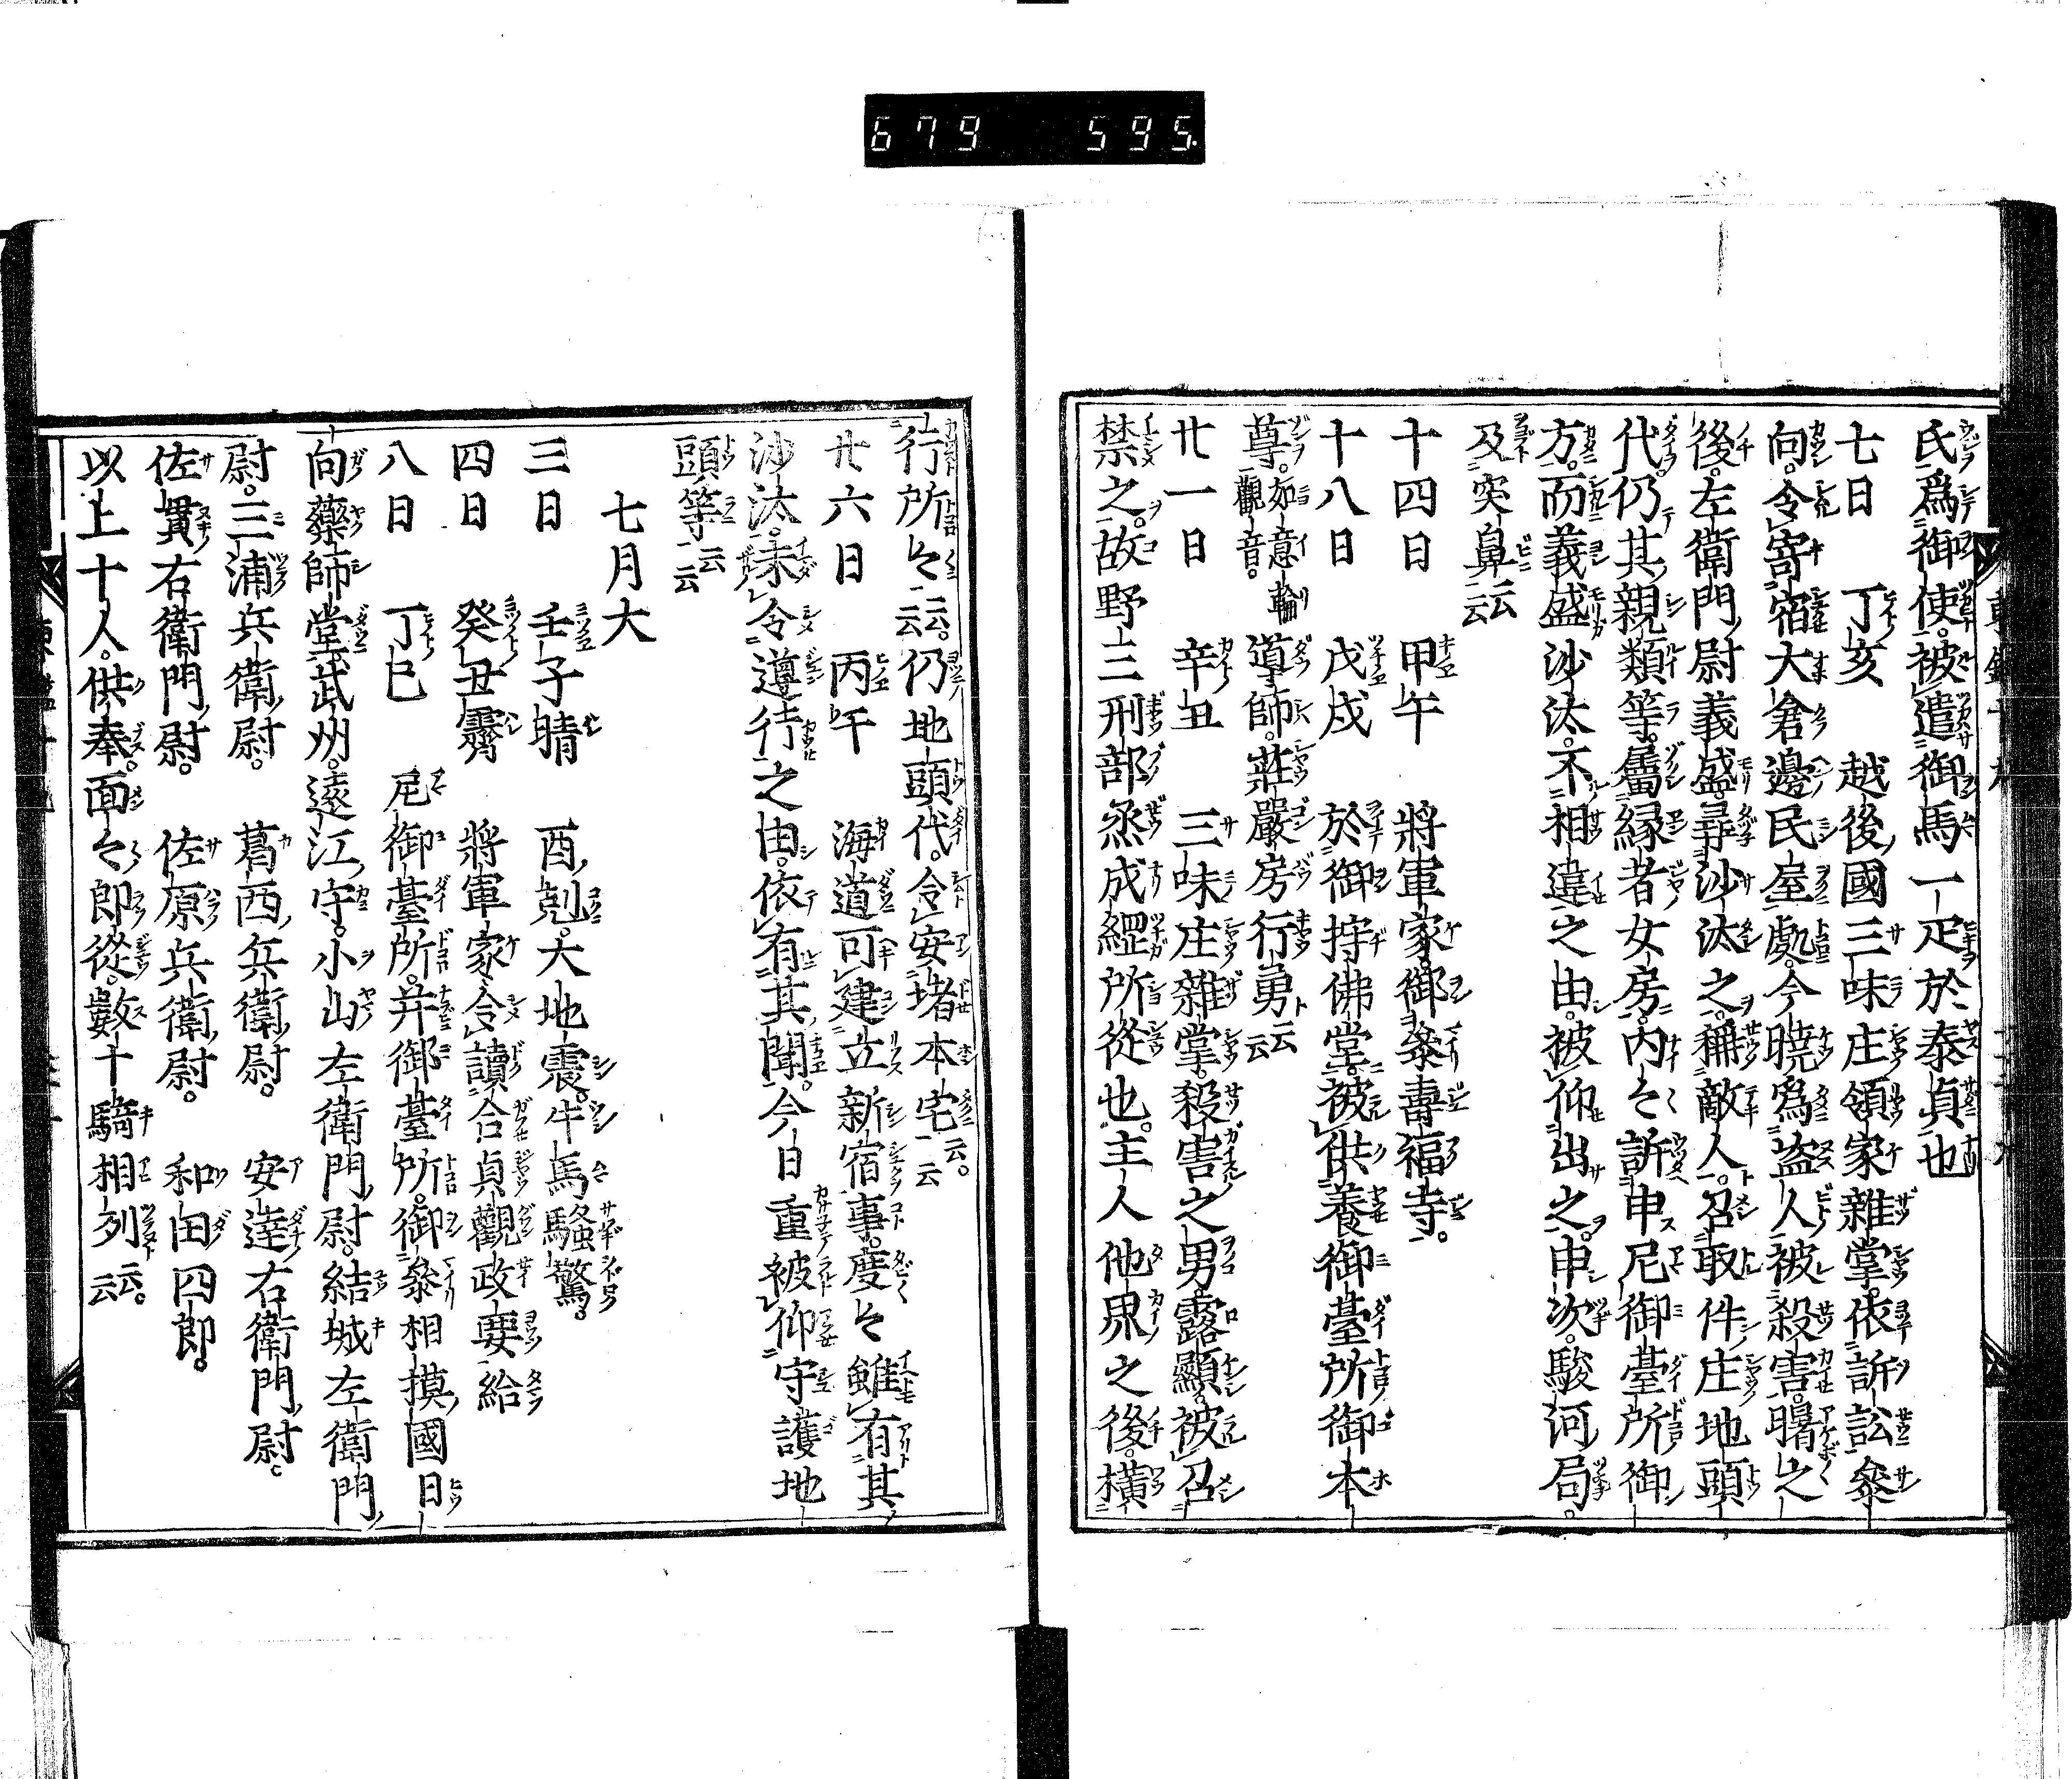 679 595
氏爲御使。被遣御馬一疋於泰貞也
七日 丁亥 越後國三味庄領家雜掌。依訴訟參
向。令寄宿大倉邊民屋處。今曉爲盗人被殺害。曙之
後。左衛門尉義盛尋沙汰之。稱敵人。召取件庄地頭
代。仍其親類等。屬縁者女房。内々訴申尼御臺所御
方。而義盛沙汰。不相違之由。被仰出之。申次。駿河局。
及突鼻云云
十四日 甲午 將軍家御參壽福寺。
十八日 戊戌 於御持佛堂。被供養御臺所御本
尊。如意輪觀音。導師。莊嚴房行勇云云
廿一日 辛丑 三味庄雜掌。殺害之男。露顯。被召
禁之。故野三刑部烝成綱所從也。主人他界之後。横
行所々云云。仍地頭代。令安堵本宅云云。
廿六日 丙午 海道可建立新宿事。度々雖有其
沙汰。未令遵行之由。依有其聞。今日重被仰守護地
頭等云云
七月大
三日 壬子晴 酉剋。大地震。牛馬騷驚。
四日 癸丑霽 將軍家令讀合貞觀政要給
八日 丁巳 尼御臺所。并御臺所。御參相摸國日
向藥師堂。武州。遠江守。小山左衛門尉。結城左衛門
尉。三浦兵衛尉。葛西兵衛尉。安達右衛門尉。
佐貫右衛門尉。佐原兵衛尉。和田四郎。
以上十人。供奉。面々郎從。數十騎相列云云。